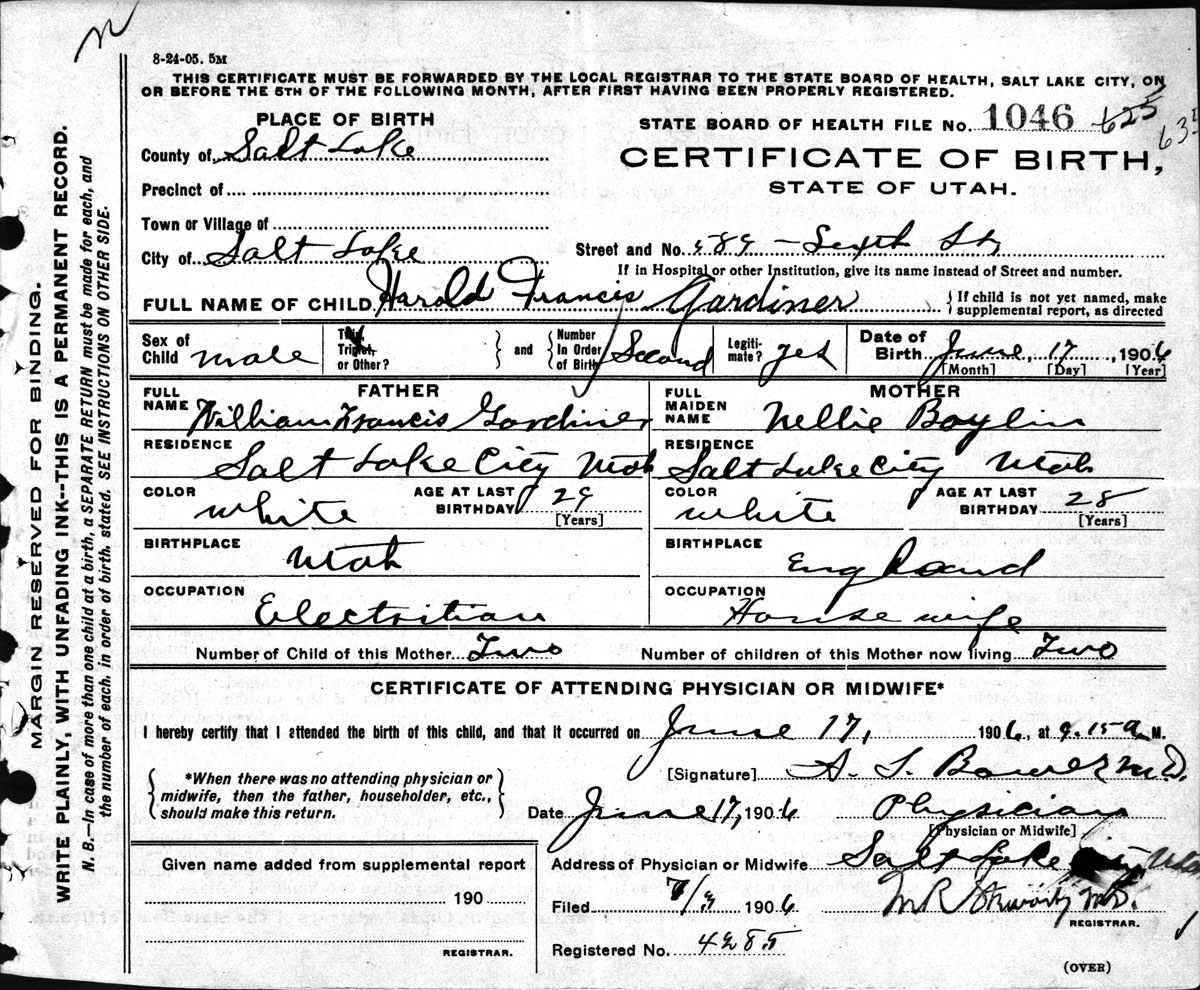 8-24-05. 5M
THIS CERTIFICATE MUST BE FORWARDED BY THE LOCAL REGISTRAR TO THE STATE BOARD OF HEALTH, SALT LAKE CITY, ON
OR BEFORE THE 5TH OF THE FOLLOWING MONTH, AFTER FIRST HAVING BEEN PROPERLY REGISTERED.
PLACE OF BIRTH
STATE BOARD OF HEALTH FILE No. 1046 625
635
County of Salt Lake
CERTIFICATE OF BIRTH,
STATE OF UTAH.
Precinct of
Town or Village of
City of Salt Lake
Street and No. 589 - Sixth St
If in Hospital or other Institution, give its name instead of Street and number.
FULL NAME OF CHILD Harold Francis Gardiner
{If child is not yet named, make
supplemental report, as directed
Sex of Child male
Twin, Triplet, or Other?
and
Number In Order of Birth Second
Legiti-mate? yes
Date of Birth June, 17, 1906
[Month] [Day] [Year]
FATHER
FULL NAME William Francis Gardiner
RESIDENCE Salt Lake City Utah
COLOR white
AGE AT LAST BIRTHDAY 29
[Years]
BIRTHPLACE Utah
OCCUPATION Electritian
MOTHER
FULL MAIDEN NAME Nellie Boylin
RESIDENCE Salt Lake City Utah
COLOR white
AGE AT LAST BIRTHDAY 28
[Years]
BIRTHPLACE England
OCCUPATION House wife
Number of Child of this Mother Two
Number of children of this Mother now living Two
CERTIFICATE OF ATTENDING PHYSICIAN OR MIDWIFE*
I hereby certify that I attended the birth of this child, and that it occurred on June 17, 1906, at 9.15 a M.
*When there was no attending physician or
midwife, then the father, householder, etc.,
should make this return.
[Signature] A. S. Bower M.D.
Date June 17, 1906 Physician
[Physician or Midwife]
Given name added from supplemental report
190
REGISTRAR.
Address of Physician or Midwife Salt Lake City Utah
Filed 7/9 1906
M.D.
REGISTRAR.
Registered No. 4285
(OVER)
MARGIN RESERVED FOR BINDING.
WRITE PLAINLY, WITH UNFADING INK--THIS IS A PERMANENT RECORD.
N. B.—In case of more than one child at a birth, a SEPARATE RETURN must be made for each, and
the number of each, in order of birth, stated. SEE INSTRUCTIONS ON OTHER SIDE.